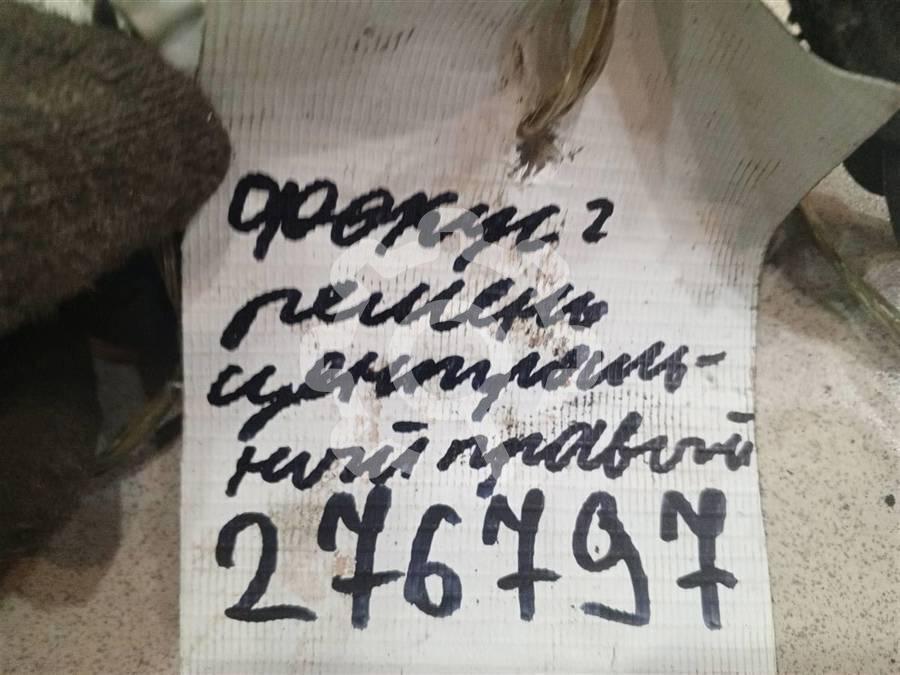 Фокус 2
ремень
централь-
ный правый
276797